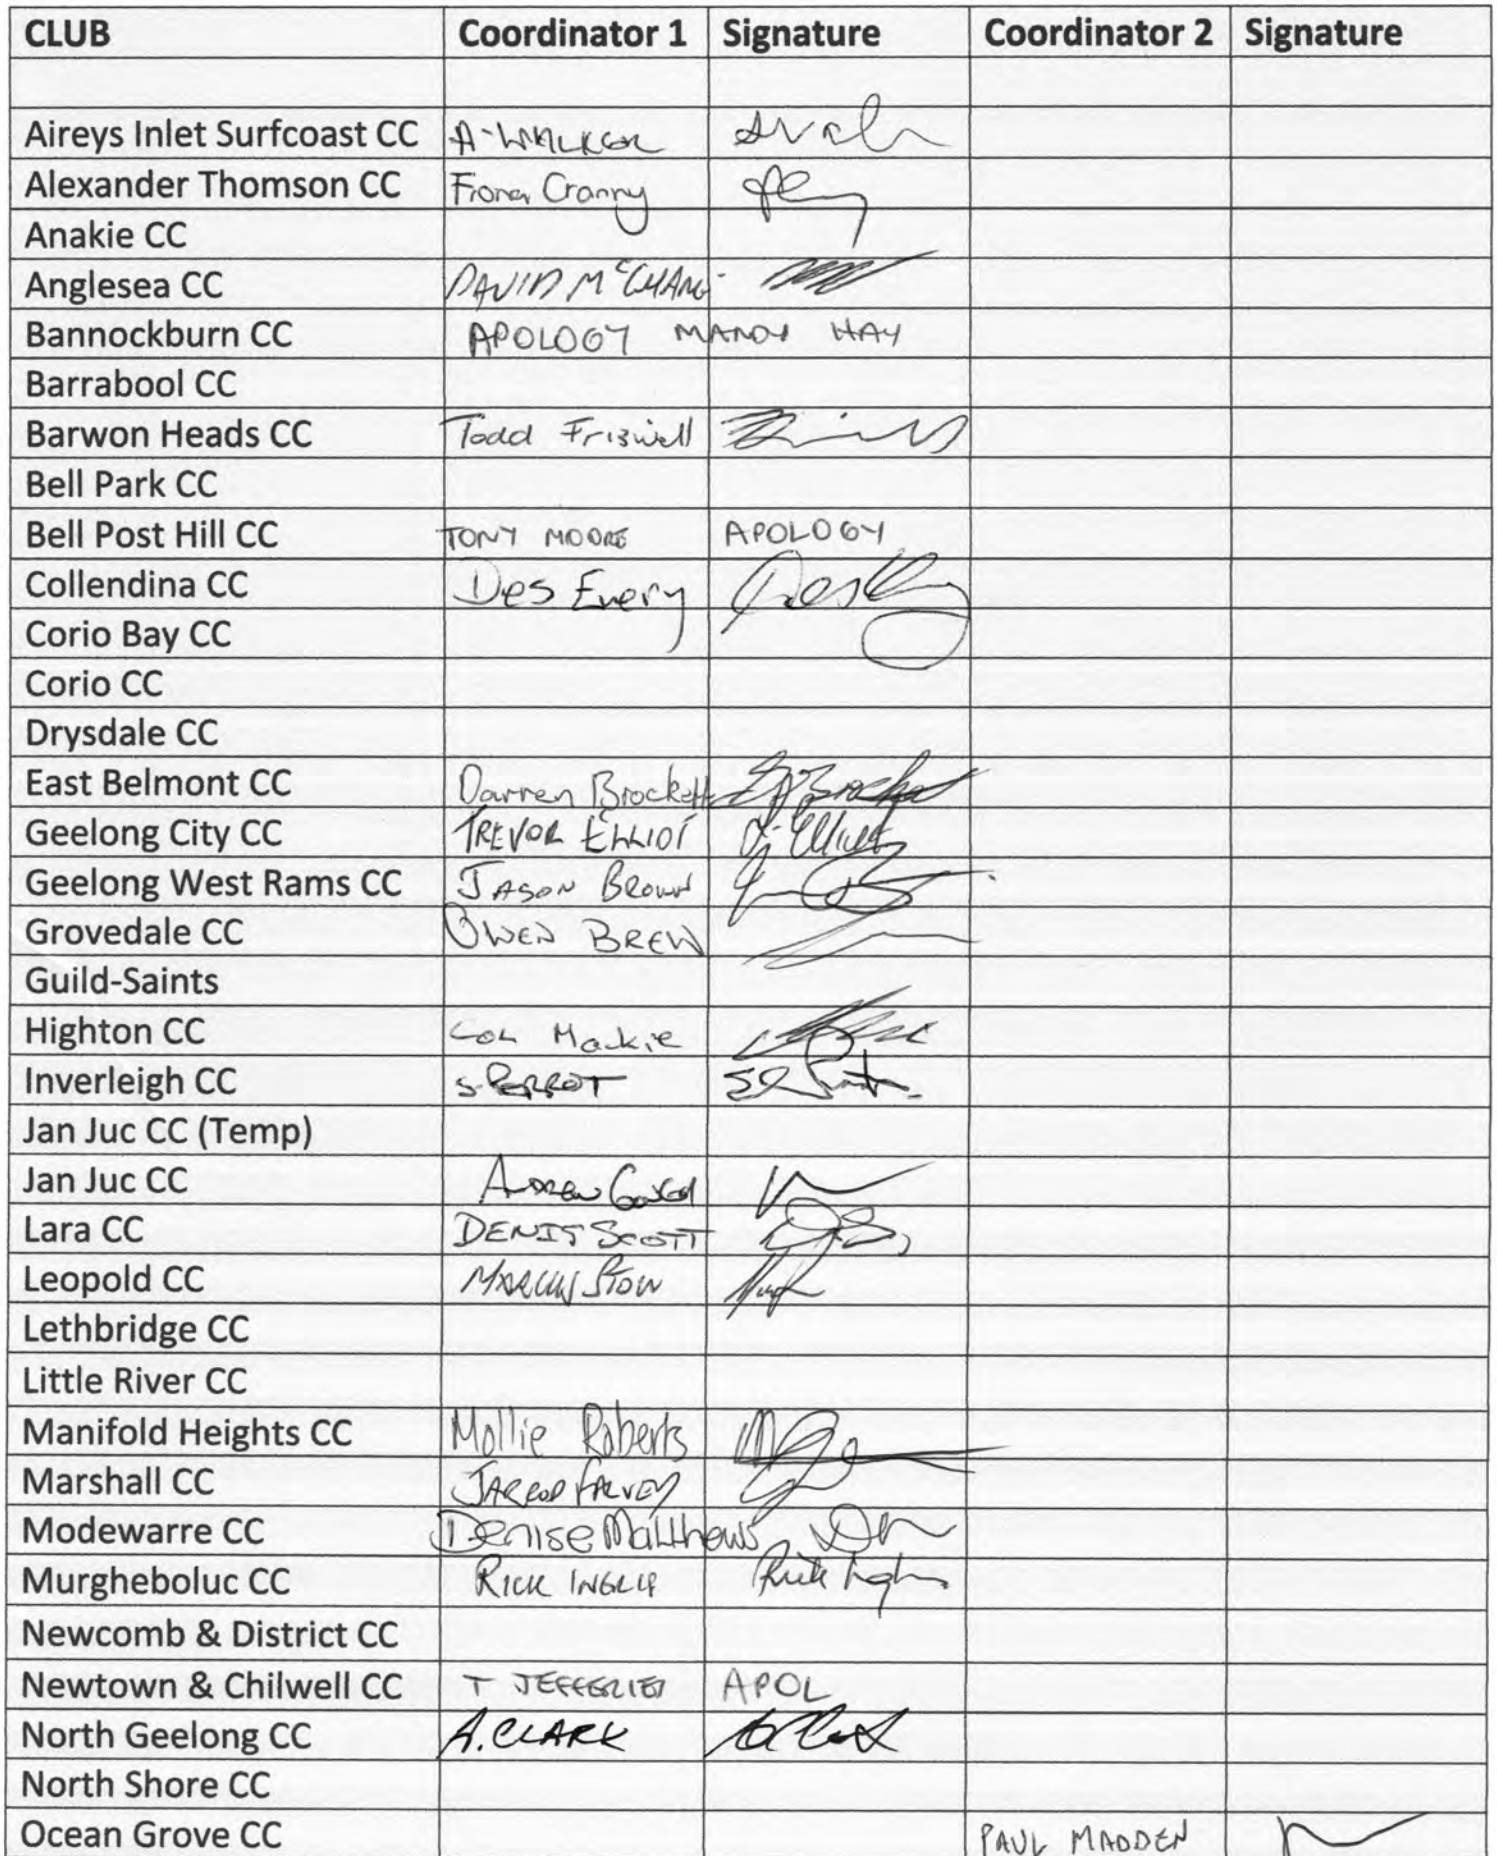 CLUB Coordinator 1 Signature Coordinator 2 Signature
Aireys Inlet Surfcoast CC A-WALKER
Alexander Thomson CC Fiona Cranny
Anakie CC
Anglesea CC DAVID
Bannockburn CC APOLOGY MANDY HAY
Barrabool CC
Barwon Heads CC Todd Friswell
Bell Park CC
Bell Post Hill CC TONY MOORE APOLOGY
Collendina CC Des Every
Corio Bay CC
Corio CC
Drysdale CC
East Belmont CC Darren Brockett
Geelong City CC TREVOR ELLIOT T. Elliott
Geelong West Rams CC JASON BROWN
Grovedale CC OWEN BREW
Guild-Saints
Highton CC Col Mackie
Inverleigh CC S. PERROT
Jan Juc CC (Temp)
Jan Juc CC ANDREW
Lara CC DENIS SCOTT
Leopold CC MARCUS STOW
Lethbridge CC
Little River CC
Manifold Heights CC Mollie Roberts
Marshall CC JARROD FALVEY
Modewarre CC Denise Matthews
Murgheboluc CC RICK INGLIS
Newcomb & District CC
Newtown & Chilwell CC T JEFFERIES APOL
North Geelong CC A. CLARK
North Shore CC
Ocean Grove CC PAUL MADDEN